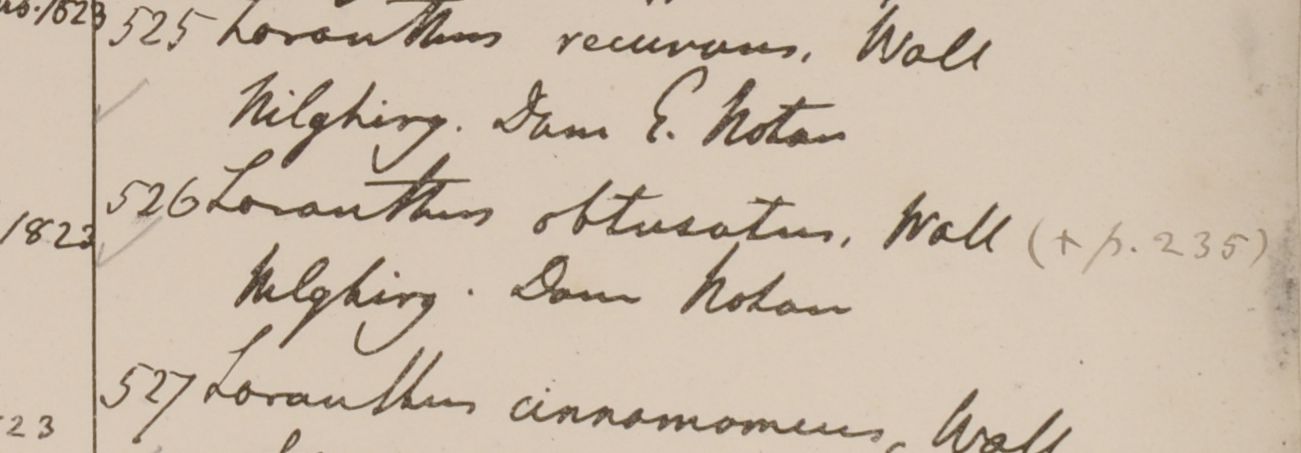 1823
525 Loranthus recurvus, Wall
Nilghiry. Dom E. Noton
526 Loranthus obtusatus, Wall (+ p. 235)
1823
Nilghiry. Dom Noton
527 Loranthus cinnamomeus, Wall
23